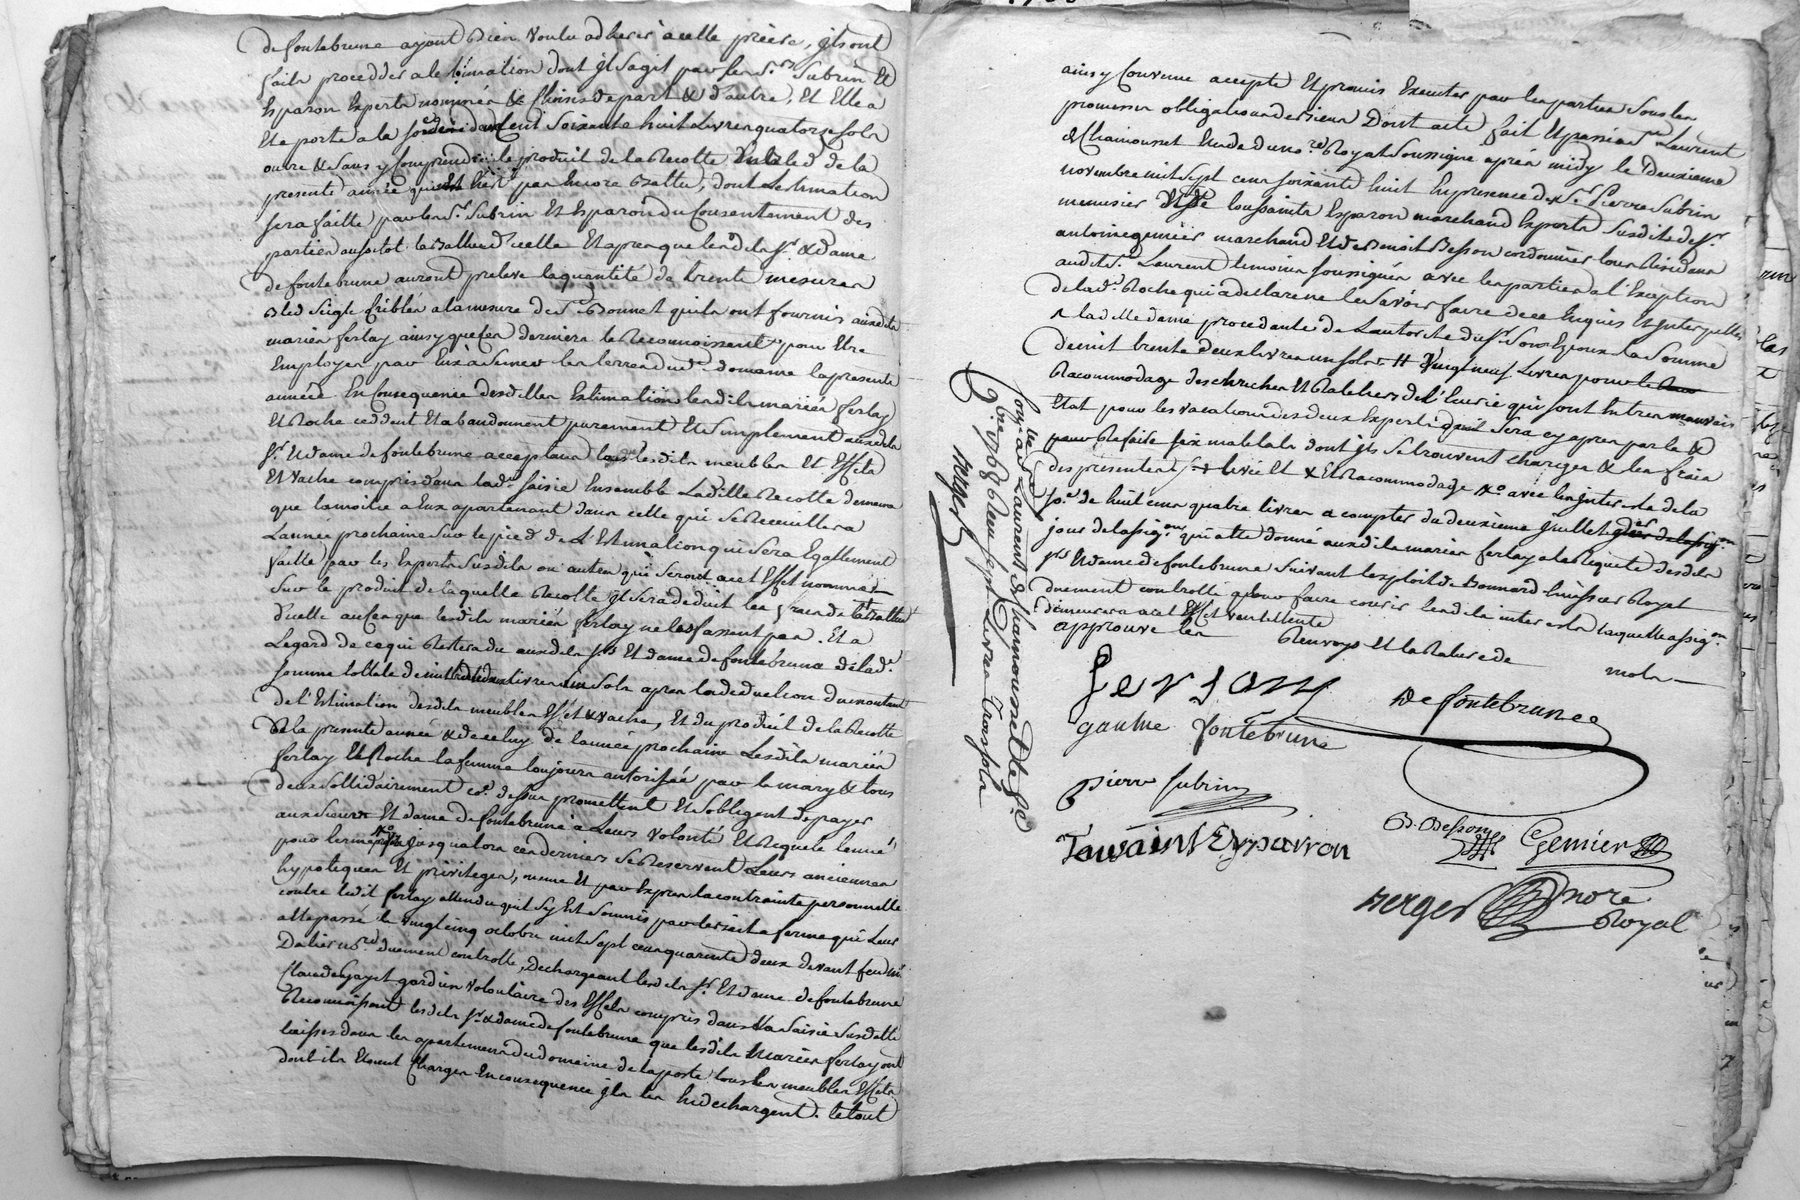 de fontebrune ayant bien voulu adherer a cette priere, ils ont
fait proceder a lestimation dont il sagit par les Srs Subrin Et
Esparon Experts nommés & choisis de part & d'autre, Et Elle a
Eté portée a la cent soixante huit livres quatorze sols
outre & sans y comprendre le produit de la Recolte de la
presente année qui pas Encore battue, dont lestimation
sera faitte par les Srs Subrin Et Esparon du Consentement des
parties aussitot la batture d'icelle Et apres que lesdits Sr & Dame
de fontebrune auront prelevé la quantité de trente mesures
bled seigle criblés a la mesure de St Bonnet quils ont fournis auxdits
mariés ferlay ainsy que ces derniers le Reconnoissent pour Etre
Employés par Eux a semer les terres dud. domaine la presente
année En Consequence desdittes Estimations lesdits mariés ferlay
Et Roche ceddent Et abandonnent purement Et simplement auxdits
Sr Et dame de fontebrune acceptans lesdits meubles Et Effets
Et vache compris dans lad. saisie Ensemble Laditte Recolte de meme
que la moitié a Eux apartenant dans celle qui se Recueillera
L'année prochaine sur le pied de L'Estimation qui sera Egallement
faitte par les Experts susdits ou autres qui seront a cet Effet nommés
sur le produit de laquelle Recolte il sera deduit les frais de
d'icelle au cas que lesdits mariés ferlay ne les fassent pas. Et a
Legard de ce qui Restera du auxdits Srs Et dame de fontebrune de lad.
somme totale de livres un sols apres la deduction du montant
de l'Estimation desdits meubles Effets & vache, Et du produit de la Recolte
de la presente année & de celuy de l'année prochaine Lesdits mariés
ferlay Et Roche la femme toujours autorisée par le mary & tous
deux sollidairement co. dessus promettent Et sobligent de payer
aux Sieur Et dame de fontebrune a Leurs volonté Et Requete
pour terme jusqu'alors ces derniers se Reservent Leurs anciennes
hypoteques Et privileges, meme Et par Exprès la contrainte personnelle
contre ledit ferlay attendu quil sy Est soumis par le bail a ferme qui Leur
a Eté passé le vingt cinq octobre mil sept cent quarante deux devant feu Me
Dalier nore duement controllé, dechargeant lesdits Sr Et dame de fontebrune
Claude gayet gardien volontaire des Effets compris dans la saisie susditte
Reconnoissant lesdits Sr & dame de fontebrune que lesdits mariés ferlay ont
laissés dans les apartements du domaine de la poste tous les meubles Effets
dont ils Etoient Chargés En consequence ils les En dechargent. le tout
ainsy Convenu accepté Et promis Executer par les parties sous les
promesses obligations de Biens Dont acte fait Et passé a St Laurent
de Chamousset Etude du nore Royal soussigné après midy le Deuxieme
novembre mil sept cent soixante huit En presence de Sr Pierre Subrin
menuisier Et Sr toussaint Esparon marchand Experts susdits de Sr
antoine gemier marchand Et de Benoit Besson cordonnier tous Residans
audit St Laurent temoins soussignés avec les parties a l'Exception
de lad. Roche qui a declaré ne le savoir faire de ce Enquis Et interpellés
a laditte dame procedante de L'autorité dud. Sr son Epoux la somme
de mil trente deux livres un sols # vingt neuf Livres pour le
Racommodage des chreches Et Rateliers de l'Ecurie qui sont En tres mauvais
Etat pour les vacations des deux Experts quil sera cy apres parlé &
pour Refaire six matelats dont ils se trouvent chargés & les frais
des presentes Et Racommodage avec les interets de la
so.e de huit cent quatre livres a compter du deuxieme juillet
jour de lassigon quia Eté donné auxdits mariés ferlay a la Requete desdits
Srs Et dame de fontebrune suivant l'exploit de Bonnard huissier Royal
duement controllé pour faire courir lesdits interets laquelle assigon
demeurera a cet Effet
approuvé les Renvoys Et la Rature de mots
ferlay
De fontebrunee
gaulne fontebrune
Pierre Subrin
B. Besson
Gemier
Tousaint Esparron
Berger nore Royal
9bre 1768 Reçu sept Livres Trois sols
Berger